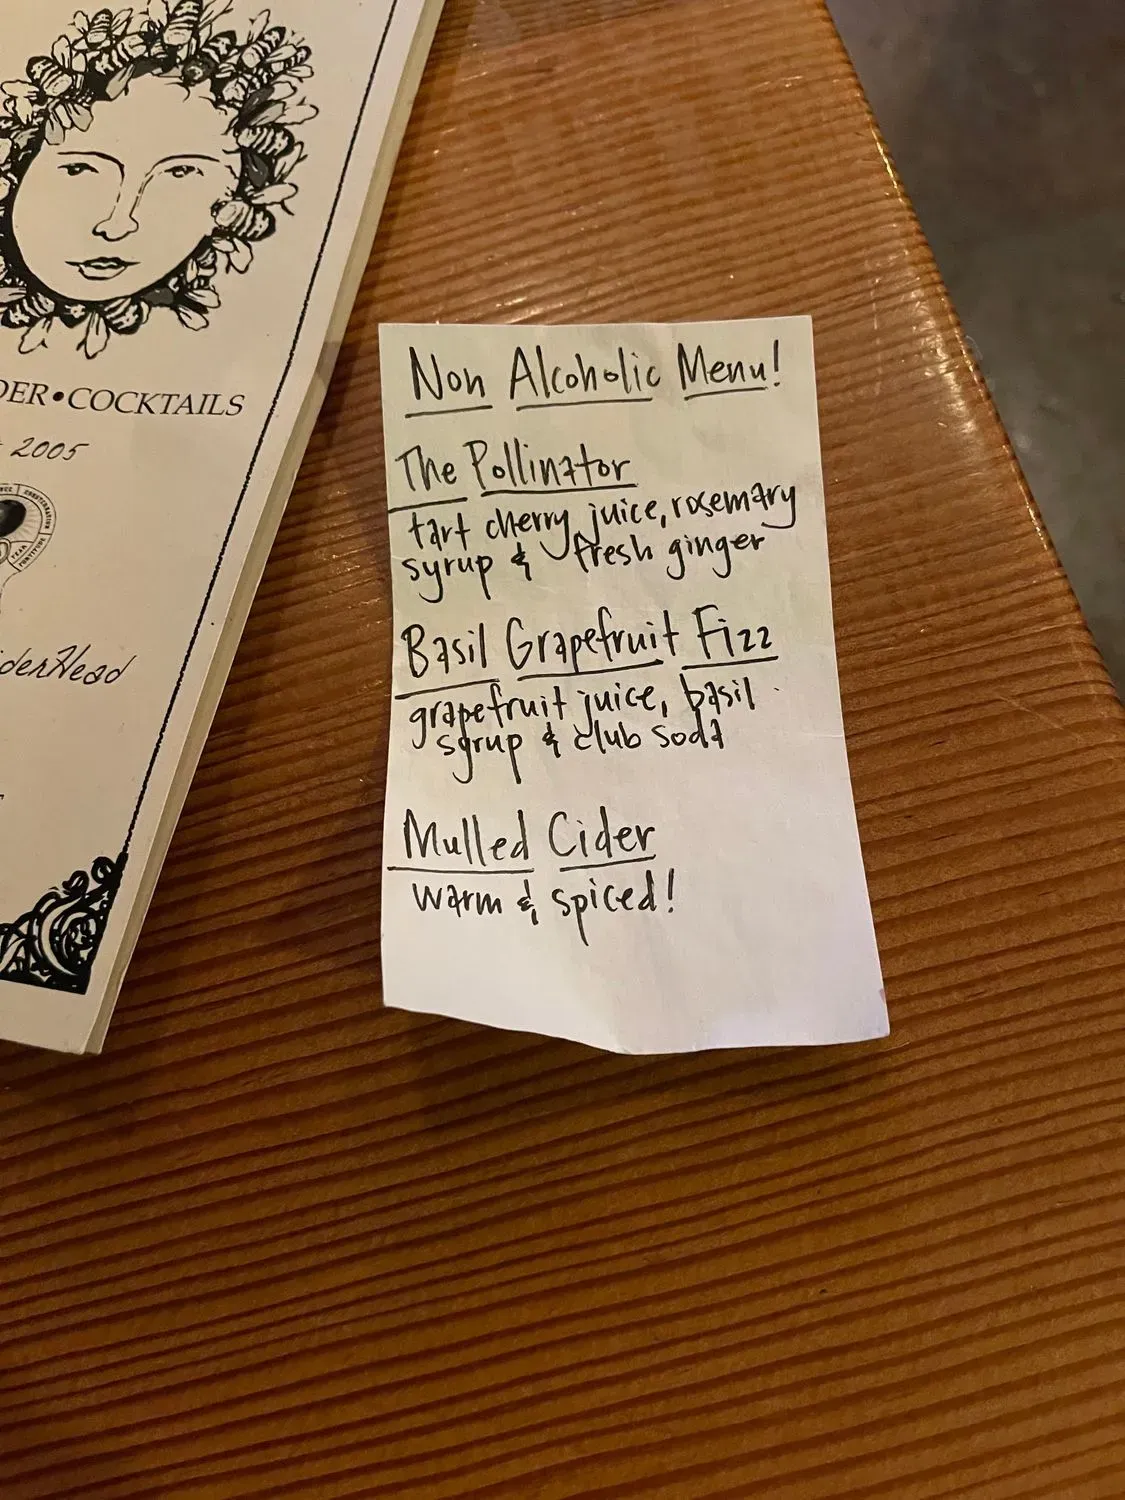 DER • COCKTAILS
2005
derHead
Non Alcoholic Menu!
The Pollinator
tart cherry juice, rosemary
syrup & fresh ginger
Basil Grapefruit Fizz
grapefruit juice, basil
syrup & club soda
Mulled Cider
warm & spiced!